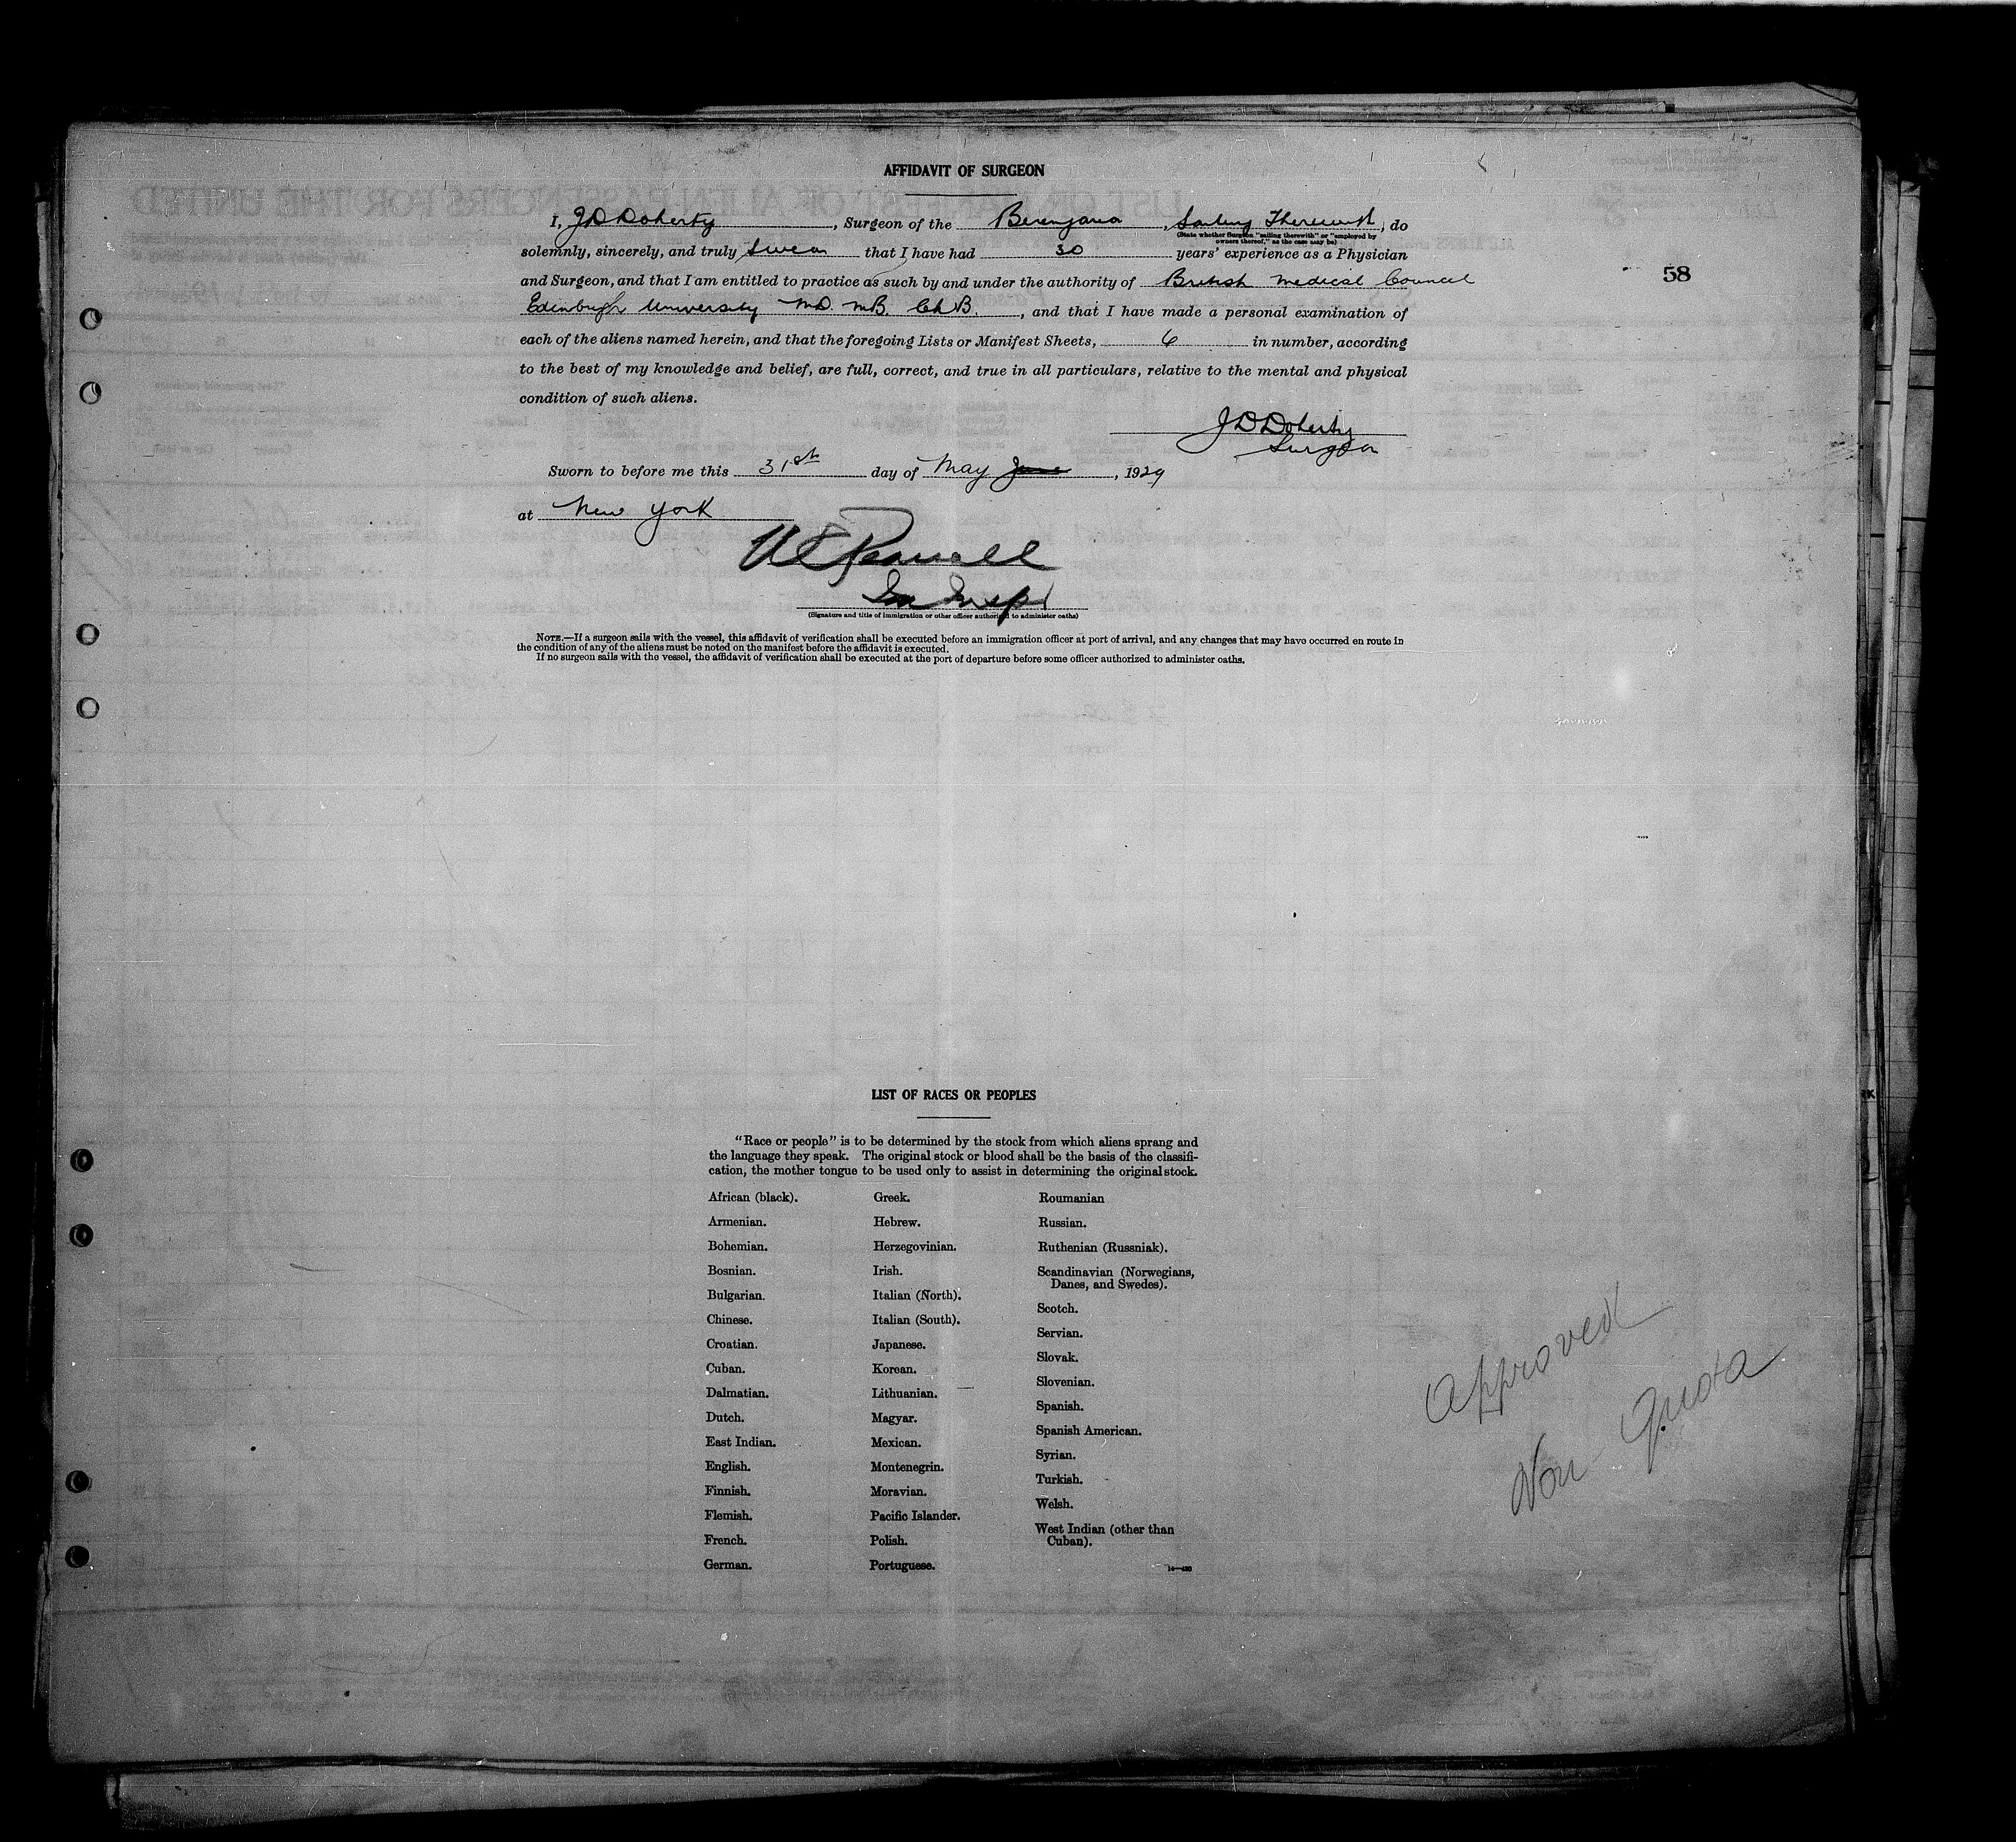 AFFIDAVIT OF SURGEON
58
I, J D Doherty, Surgeon of the Berengaria, Sailing Therewith, do
(State whether Surgeon "sailing therewith" or "employed by
owners thereof," as the case may be)
solemnly, sincerely, and truly swear that I have had 30 years' experience as a Physician
and Surgeon, and that I am entitled to practice as such by and under the authority of British Medical Council
Edinburgh University MD. MB. ChB., and that I have made a personal examination of
each of the aliens named herein, and that the foregoing Lists or Manifest Sheets, 6 in number, according
to the best of my knowledge and belief, are full, correct, and true in all particulars, relative to the mental and physical
condition of such aliens.
J D Doherty
Surgeon
Sworn to before me this 31st day of May June, 1929
at New York
Im Insp
(Signature and title of immigration or other officer authorized to administer oaths)
NOTE.—If a surgeon sails with the vessel, this affidavit of verification shall be executed before an immigration officer at port of arrival, and any changes that may have occurred en route in
the condition of any of the aliens must be noted on the manifest before the affidavit is executed.
If no surgeon sails with the vessel, the affidavit of verification shall be executed at the port of departure before some officer authorized to administer oaths.
LIST OF RACES OR PEOPLES
"Race or people" is to be determined by the stock from which aliens sprang and
the language they speak. The original stock or blood shall be the basis of the classifi-
cation, the mother tongue to be used only to assist in determining the original stock.
African (black).
Armenian.
Bohemian.
Bosnian.
Bulgarian.
Chinese.
Croatian.
Cuban.
Dalmatian.
Dutch.
East Indian.
English.
Finnish.
Flemish.
French.
German.
Greek.
Hebrew.
Herzegovinian.
Irish.
Italian (North).
Italian (South).
Japanese.
Korean.
Lithuanian.
Magyar.
Mexican.
Montenegrin.
Moravian.
Pacific Islander.
Polish.
Portuguese.
Roumanian
Russian.
Ruthenian (Russniak).
Scandinavian (Norwegians,
Danes, and Swedes).
Scotch.
Servian.
Slovak.
Slovenian.
Spanish.
Spanish American.
Syrian.
Turkish.
Welsh.
West Indian (other than
Cuban).
Approved
Non Quota